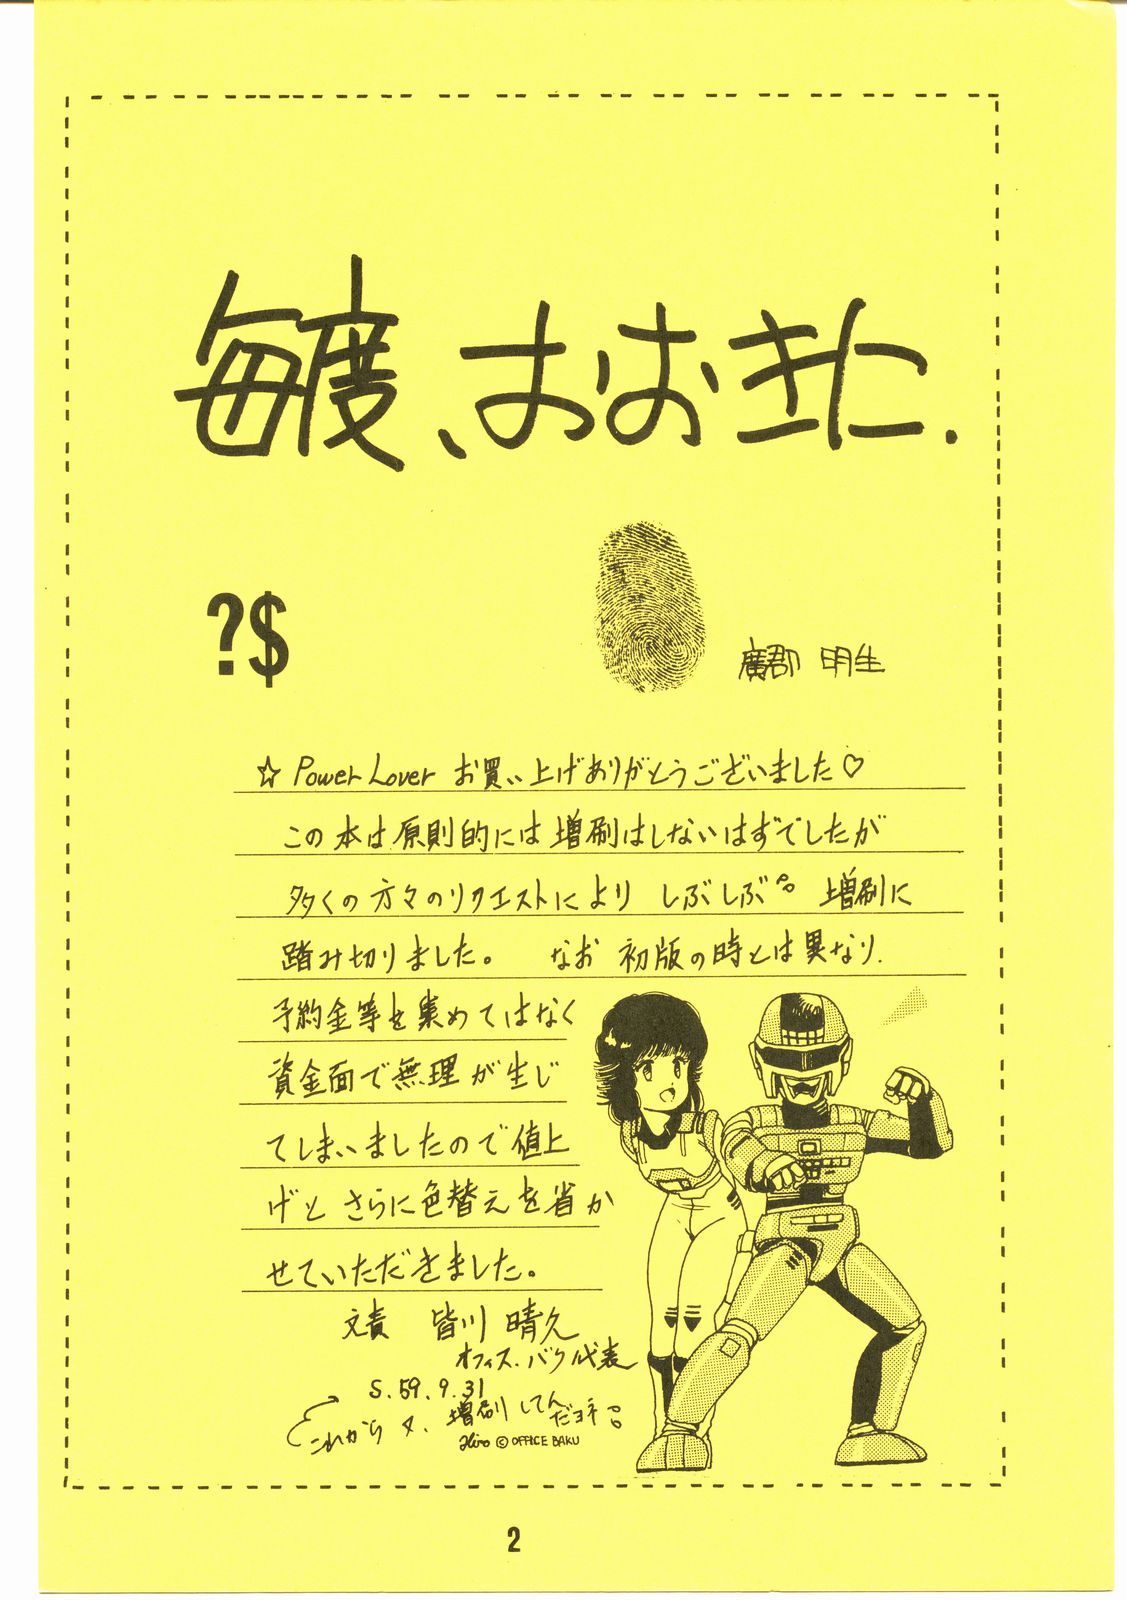 毎度、おおきに.
?$
廣郡 明生
☆ Power Lover お買い上げありがとうございました♡
この本は原則的には増刷はしないはずでしたが
多くの方々のリクエストにより しぶしぶ 増刷に
踏み切りました。 なお 初版の時とは異なり.
予約金等を集めてはなく
資金面で無理が生じ
てしまいましたので値上
げと さらに色替えを省か
せていただきました。
文責 皆川 晴久
オフィス.バク代表
S.59.9.31
これから 又、増刷してんだヨネ。
Hiro © OFFICE BAKU
2